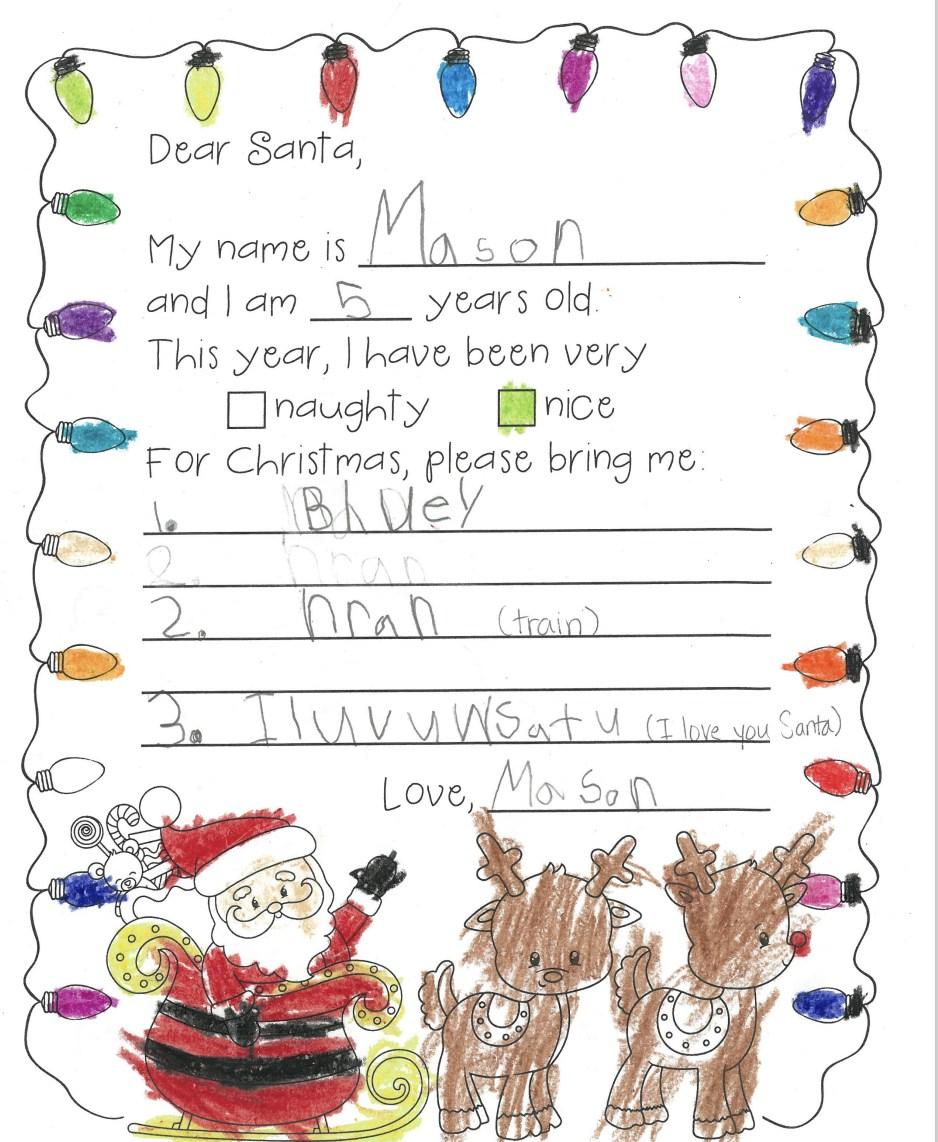 Dear Santa,
My name is Mason
and I am 5 years old.
This year, I have been very
naughty nice
For Christmas, please bring me:
1.
2. nran
2. nran (train)
3. I luvuWSatu (I love you Santa)
Love, Mason